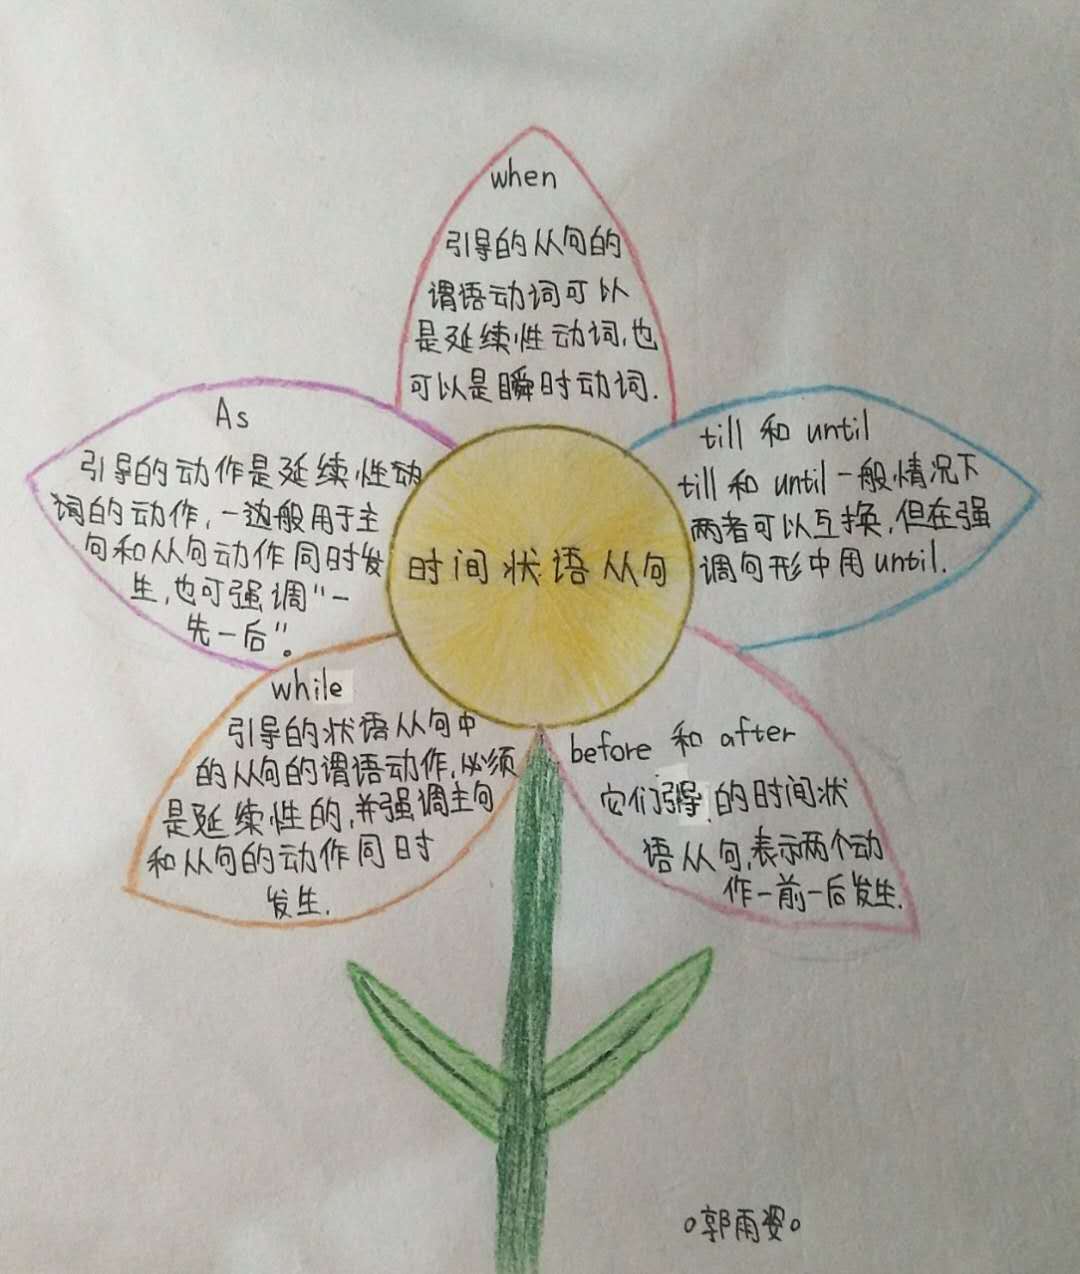 when
引导的从句的
谓语动词可以
是延续性动词,也
可以是瞬时动词.
As
引导的动作是延续性动
词的动作,一边般用于主
句和从句动作同时发
生,也可强调“一
先一后”。
till 和 until
till 和 until 一般情况下
两者可以互换,但在强
调句形中用until.
时间状语从句
while
引导的状语从句中
的从句的谓语动作,必须
是延续性的,并强调主句
和从句的动作同时
发生.
before 和 after
它们引导的时间状
语从句,表示两个动
作一前一后发生.
郭雨